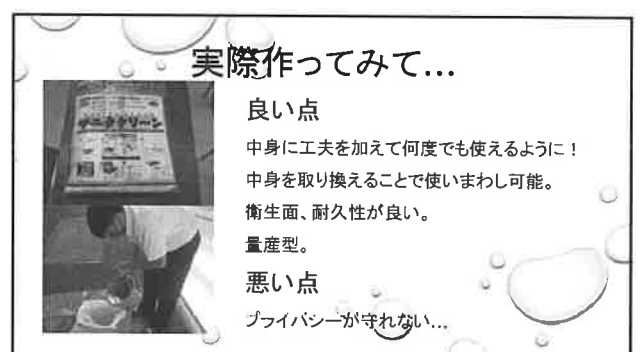 実際作ってみて…
良い点
中身に工夫を加えて何度でも使えるように！
中身を取り換えることで使いまわし可能。
衛生面、耐久性が良い。
量産型。
悪い点
プライバシーが守れない…